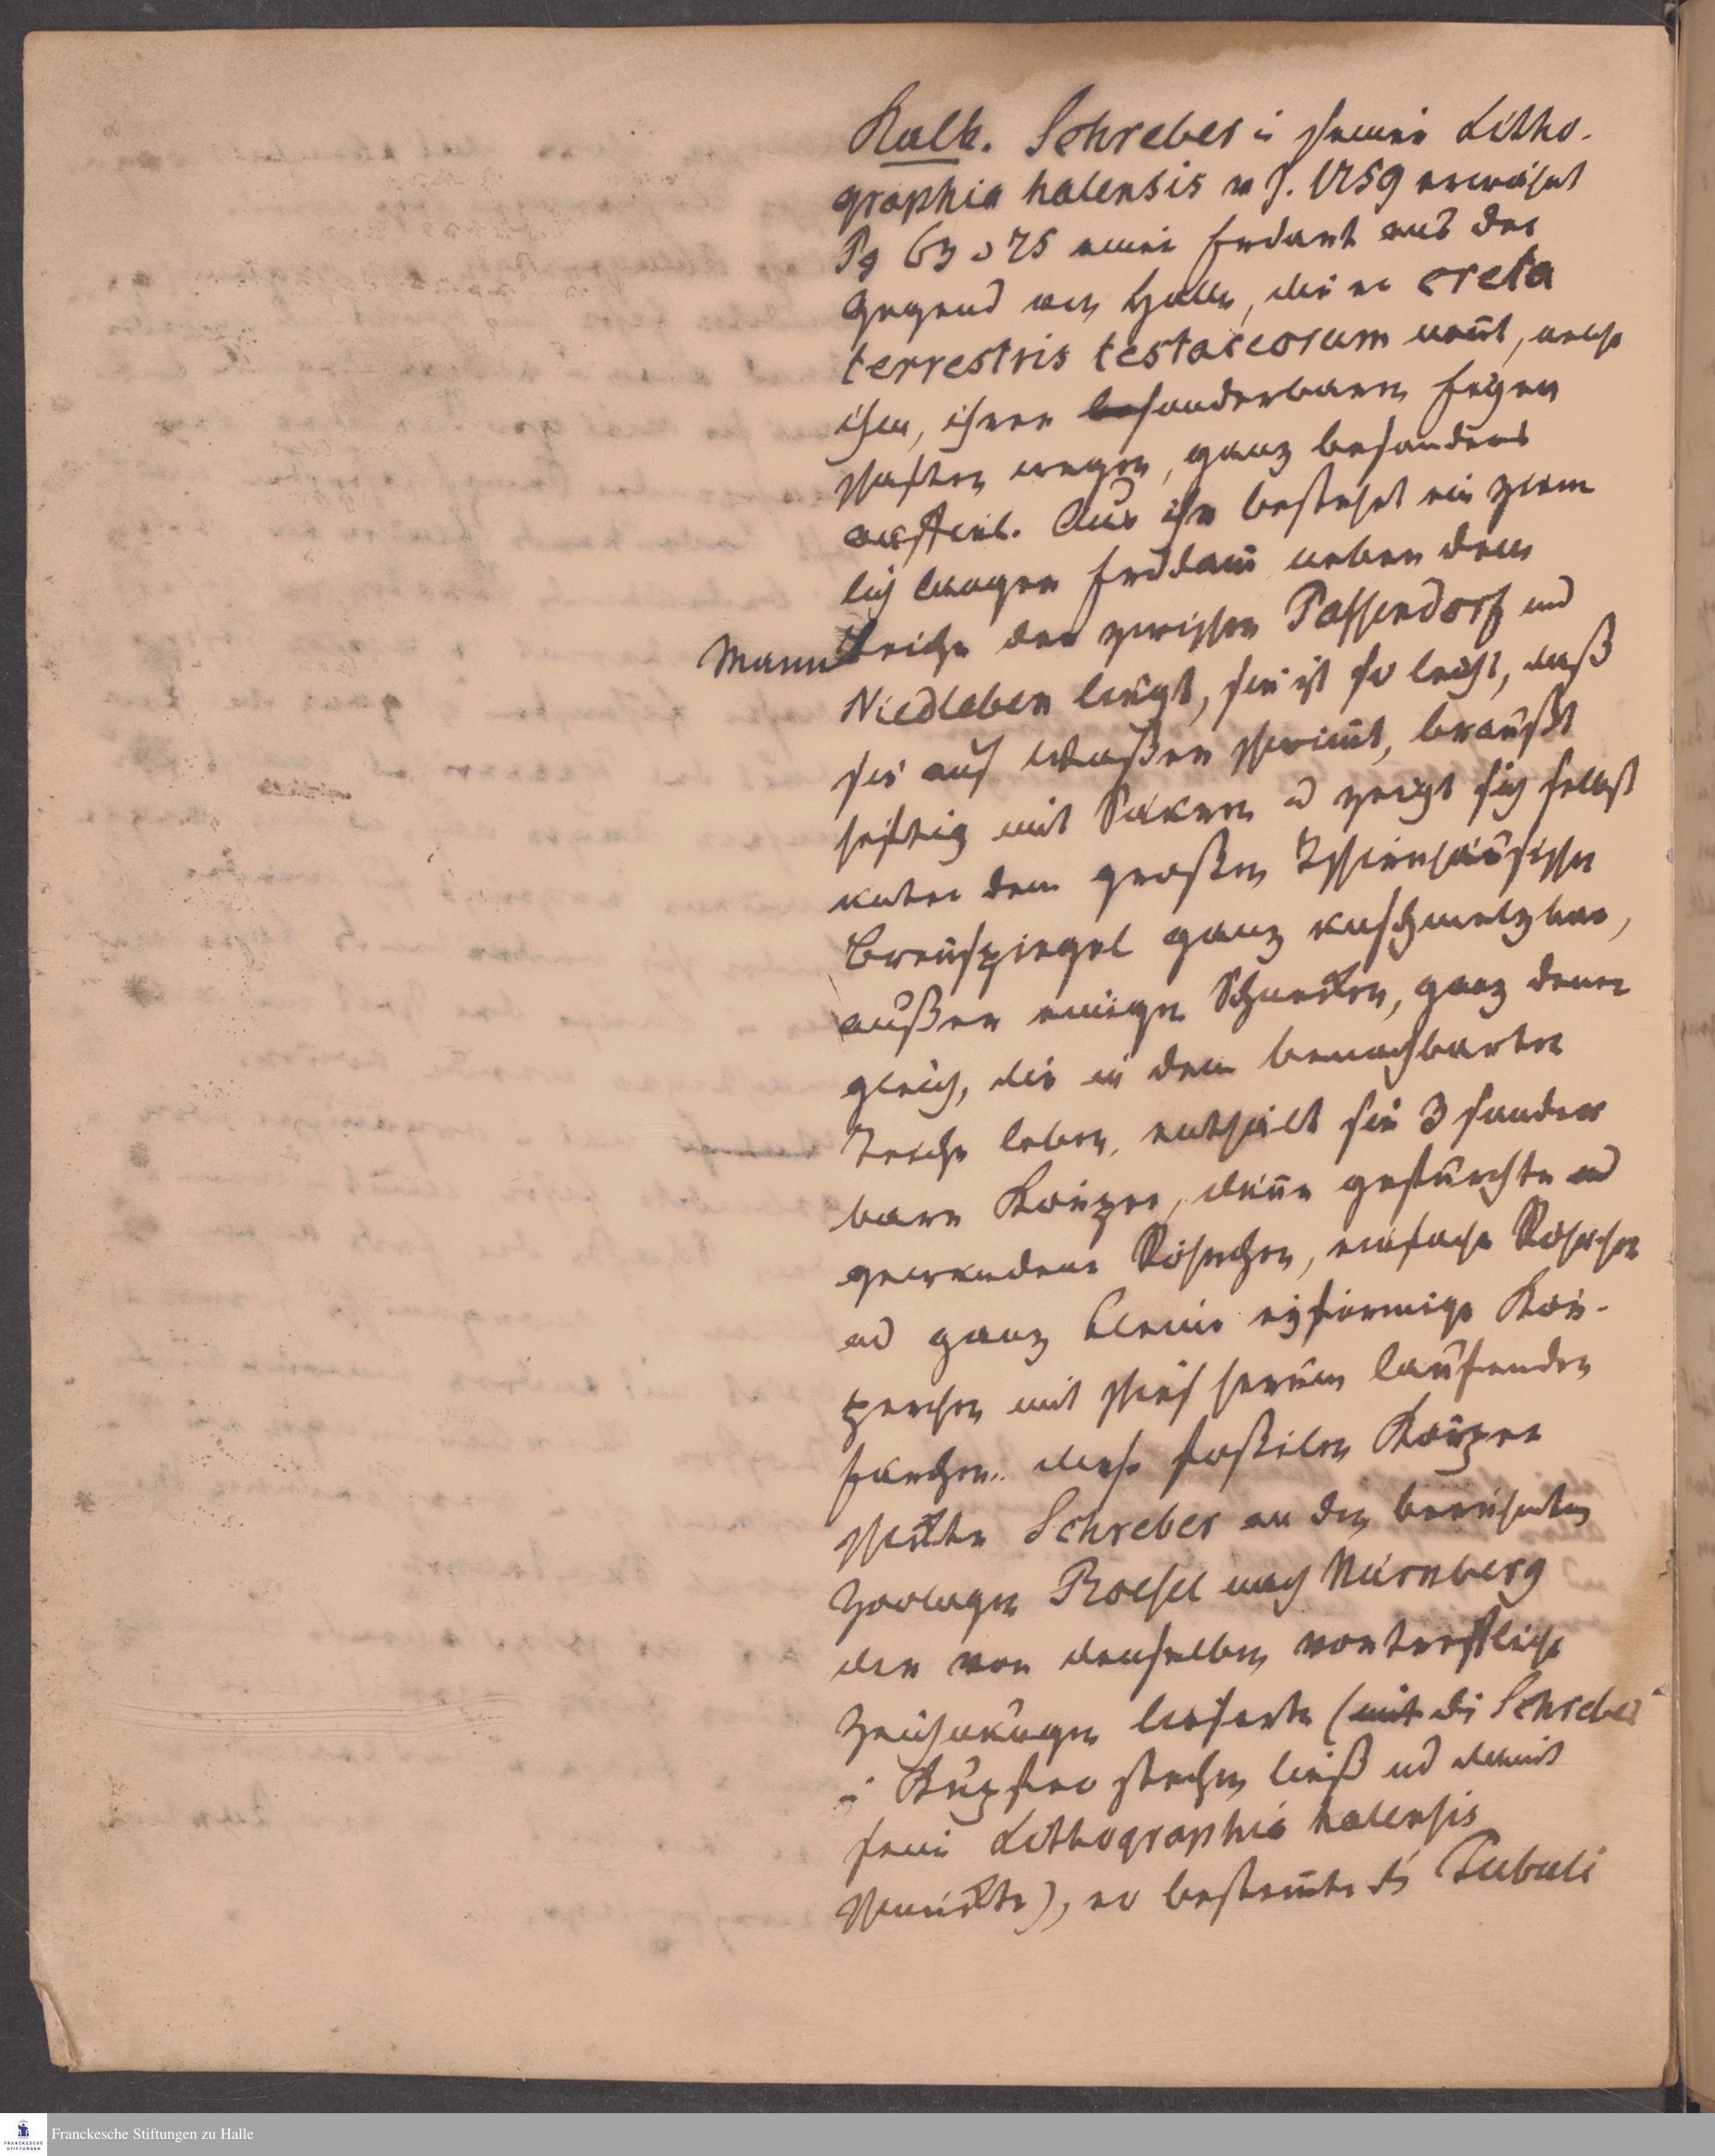 Kalk. Schreber in seiner Litho-
graphia halensis v J. 1759 erwähnt
Pg 63 u 75 einer Erdart aus der
Gegend von Halle, die er creta
terrestris testaceorum nent, welche
ihm, ihrer besonderbaren Eigen
schaften wegen, ganz besonders
auffiel. Aus ihr besteht ein ziem
lich langer Erddam neben dem
Mann Teiche der zwischen Passendorf und
Niedleben liegt, sie ist so leicht, daß
sie auf Waßer schwimt, braußt
heftig mit Säuren u zeigt sich selbst
unter dem großen Tschirnhausischen
Brenspiegel ganz unschmelzbar,
außer einigen Schnecken, ganz denen
gleich, die in dem benachbarten
Teiche leben, enthält sie 3 sonder
bare Körper, düne gefurchte und
gewundene Röhrchen, einfache Röhrchen
und ganz kleine eyförmige Kör-
perchen mit schief herum laufenden
Furchen. diese foßilen Körper
schickte Schreber an den berühmten
Zoologen Roesel nach Nürnberg
der von denselben vortreffliche
Zeichnungen lieferte (mit die Schreber
in Kupfer stechen ließ und damit
seine Lithographia halensis
schmückte), er bestimte die Tubuli
Franckesche Stiftungen zu Halle
FRANCKESCHE
STIFTUNGEN